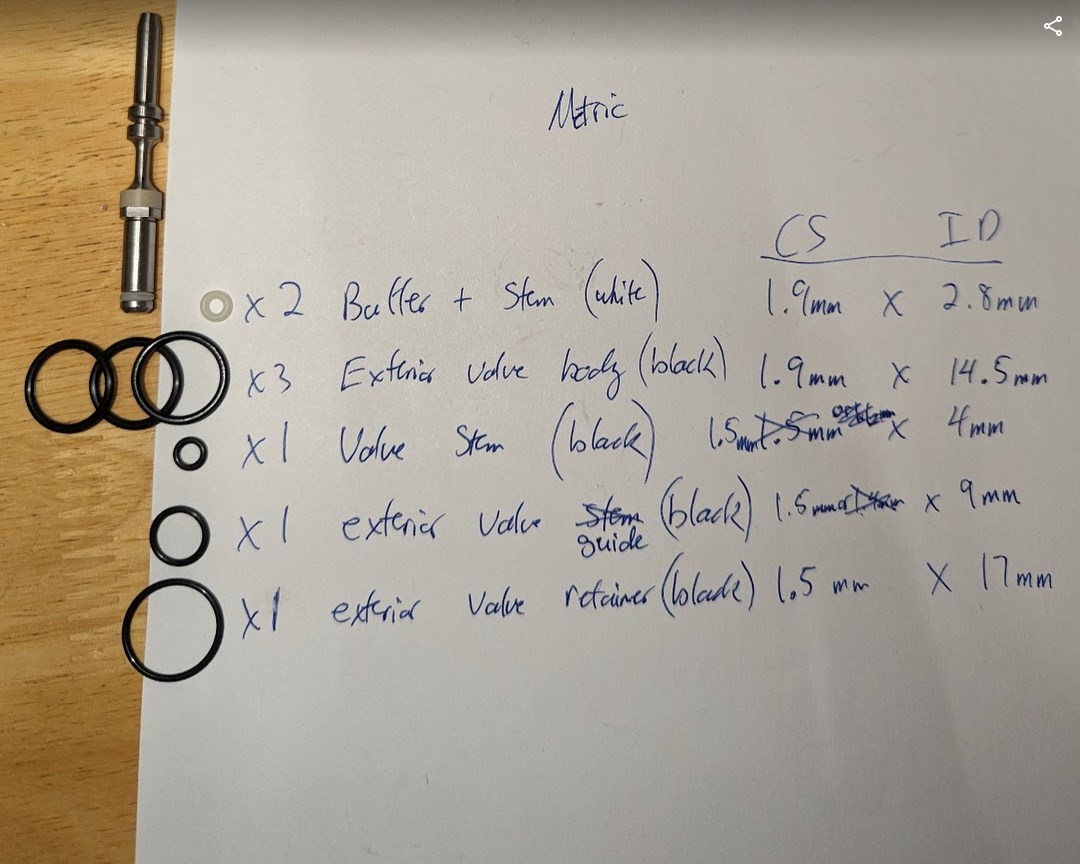 Metric
CS ID
x2 Buffer + Stem (white) 1.9mm x 2.8mm
x3 Exterior valve body (black) 1.9mm x 14.5mm
x1 Valve Stem (black) 1.5mm 1.5mm x 4mm
x1 exterior valve Stem (black) 1.5mm x 9mm
guide
x1 exterior valve retainer (black) 1.5 mm x 17mm